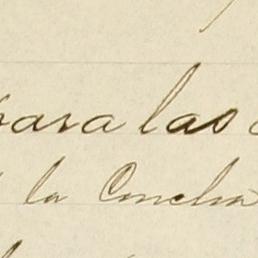 para las
la Concha